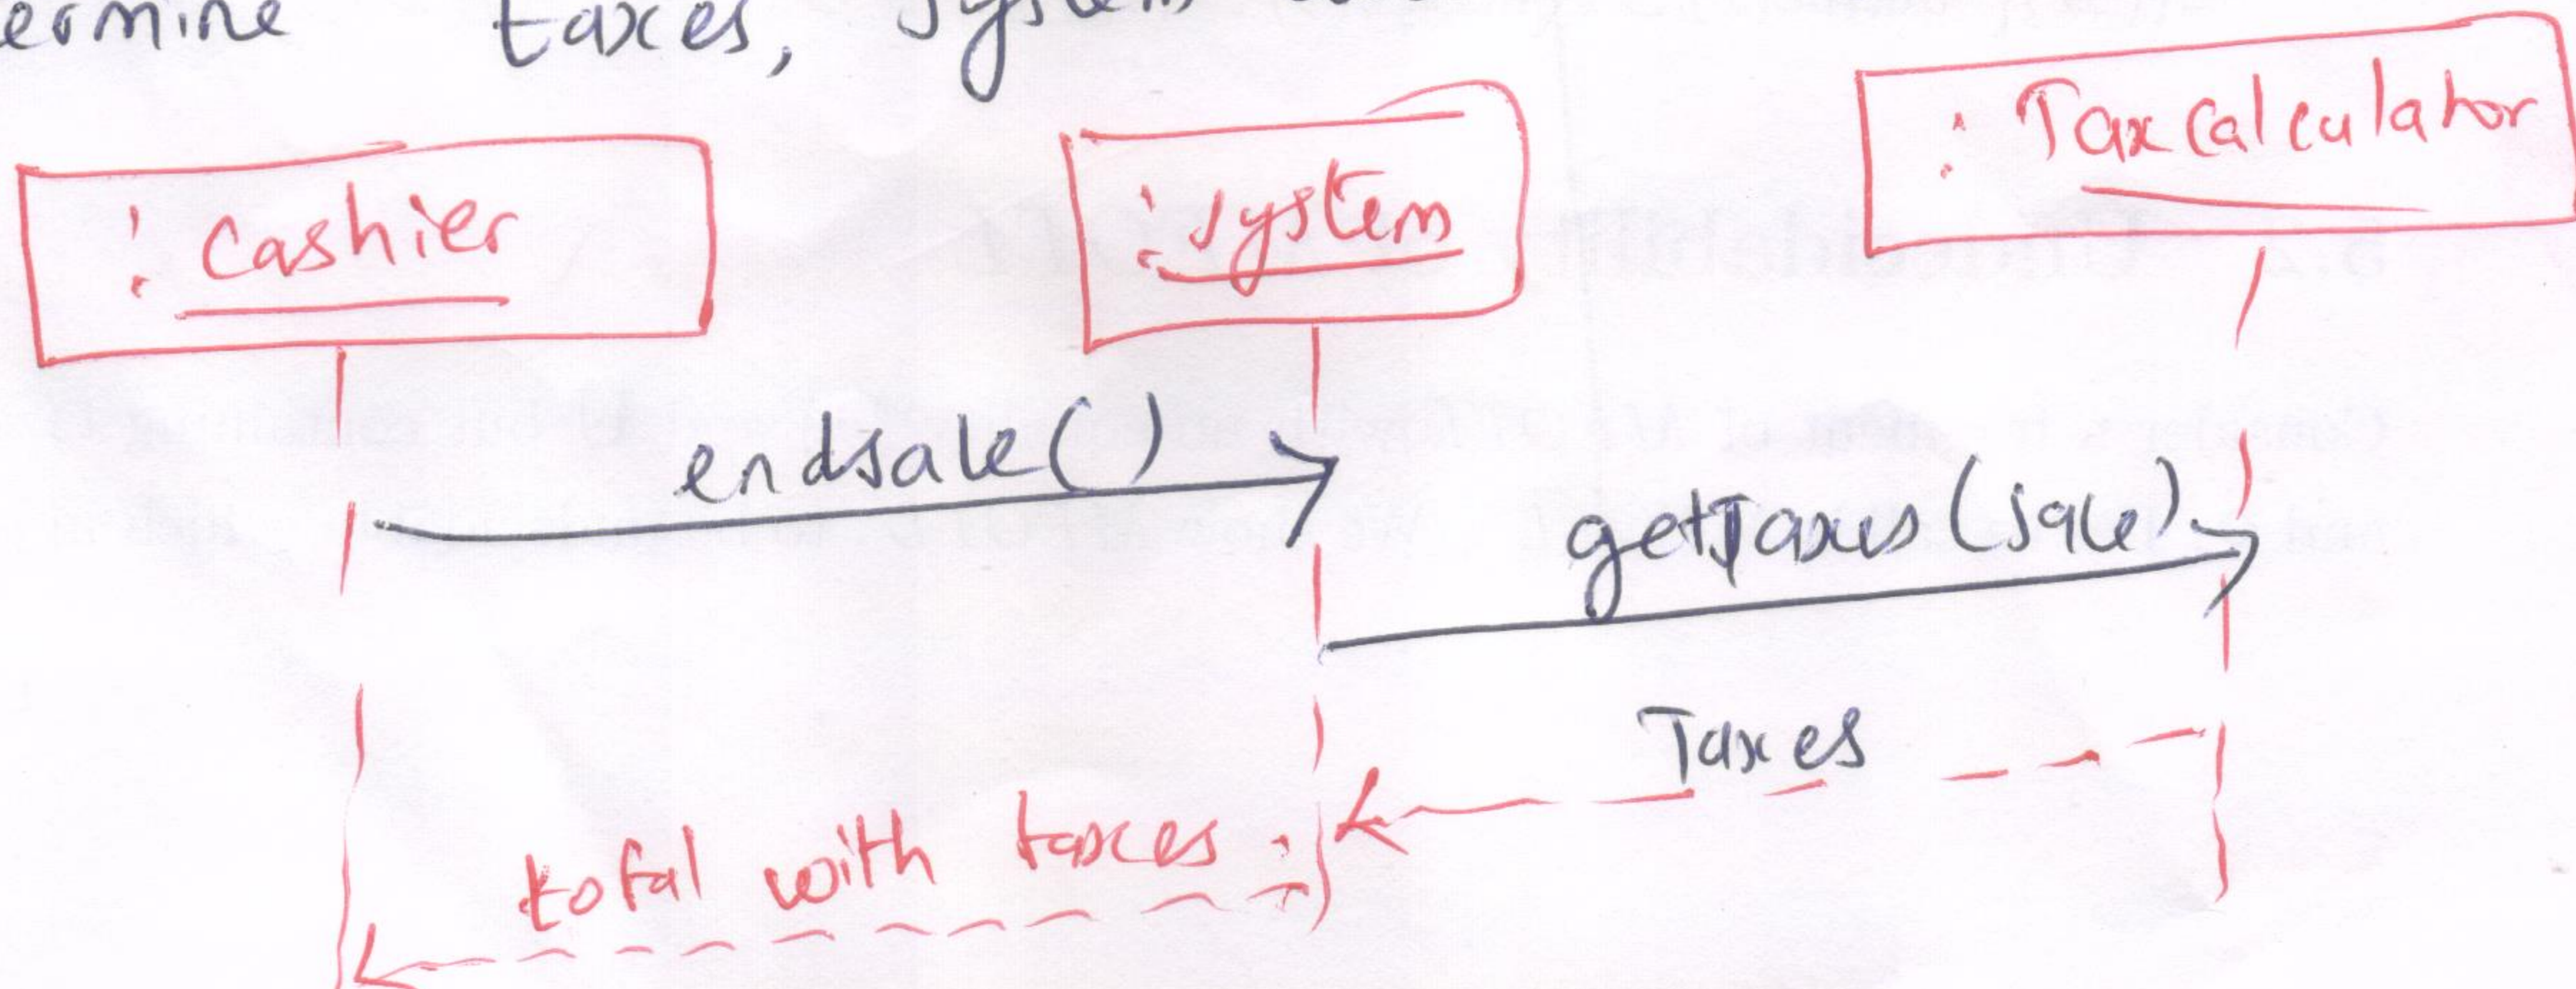 taxes, system
: cashier
: system
: Taxcalculator
endsale()
getTaxes(sale)
Taxes
total with taxes